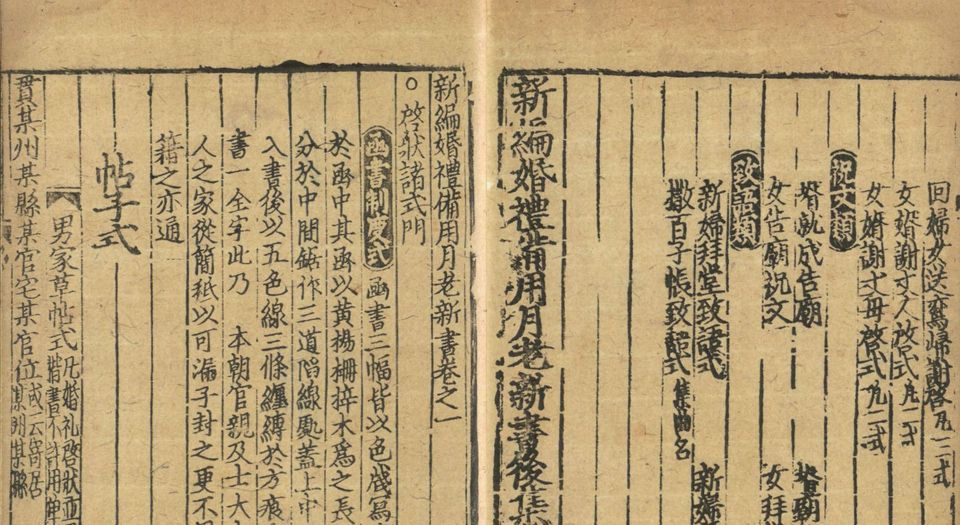 回婦女送鸞歸謝啓凡一二式
女婿謝丈人啓式凡一二式
女婿謝丈母啓式凡一二式
祝文類
婿就成告廟
女告廟祝文
女
致語類
新婦拜堂致語式
新婦
女拜
撒百子帳致語式 集曲名
新編婚禮備用月老新書後集
新編婚禮備用月老新書卷之一
○啓狀諸式門
函書制度式 函書三幅皆以色牋寫
於函中其函以黃楊柵梓木爲之長
分於中間鋸作三道陷線處蓋上中
入書後以五色線三條纏縛於方痕
書一全字此乃 本朝官親及士大
人之家從簡秪以可漏子封之更不
籍之亦通
帖子式
男家草帖式 凡婚礼啓狀並
楷書不許用
貫某州某縣某官宅某官位 或云寄居
某州某縣